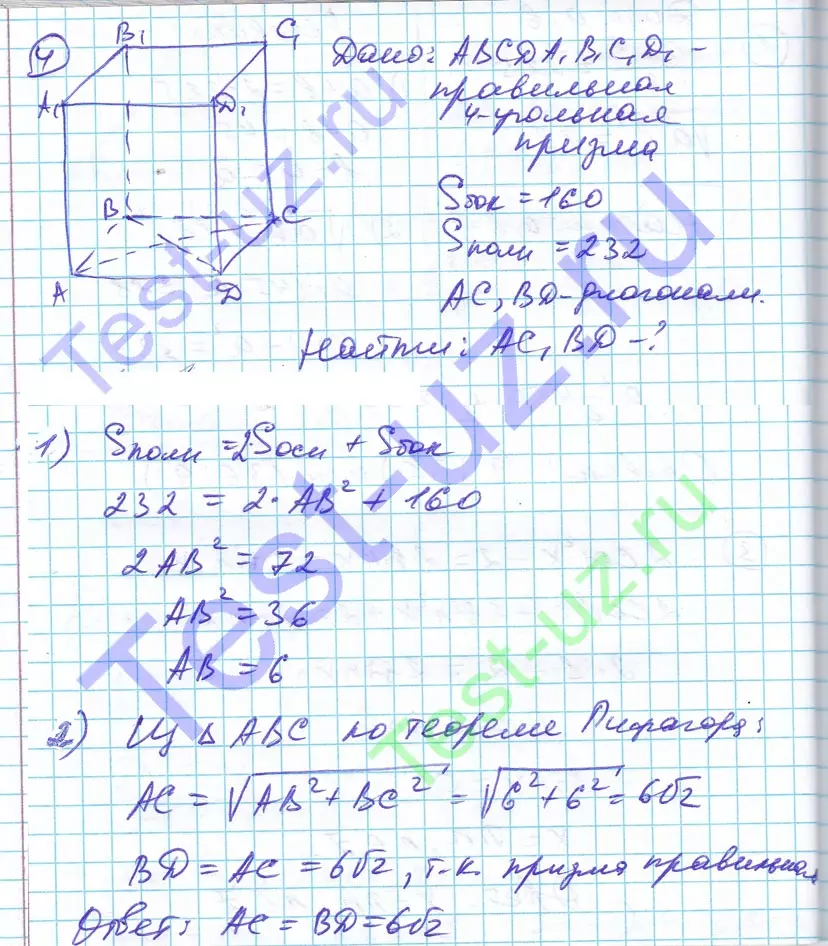 4
B₁ C₁
A₁ D₁
B C
A D
Дано: ABCDA₁B₁C₁D₁ -
правильная
4-угольная
призма
Sбок = 160
Sполн = 232
AC, BD - диагонали.
Найти: AC, BD - ?
1) Sполн = 2·Sосн + Sбок
232 = 2·AB² + 160
2AB² = 72
AB² = 36
AB = 6
2) Из Δ ABC по теореме Пифагора:
AC = √(AB² + BC²) = √(6² + 6²) = 6√2
BD = AC = 6√2, т.к. призма правильная
Ответ: AC = BD = 6√2
Test-uz.ru
Test-uz.ru
Test-uz.ru